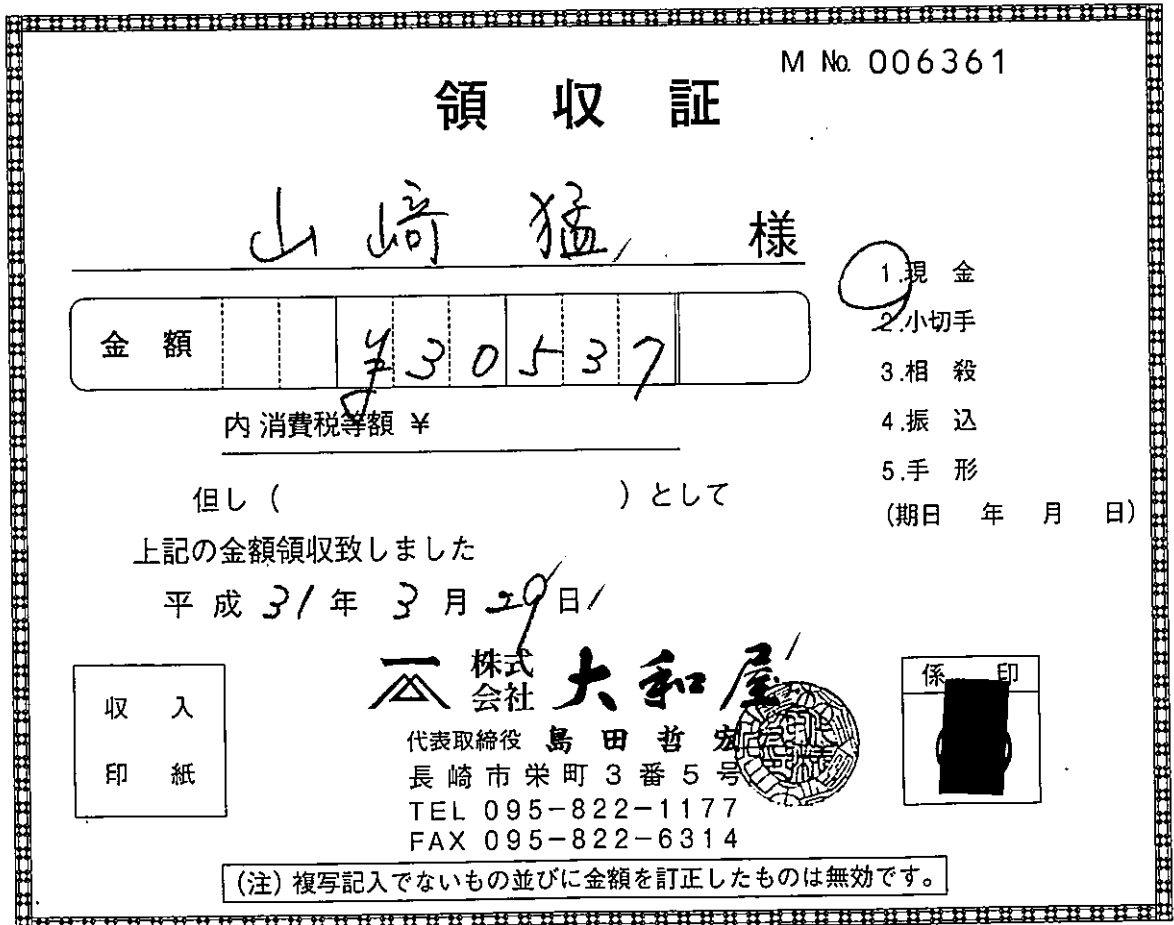 M No. 006361
領収証
山﨑 猛 様
金額 ¥30537
内 消費税等額 ¥
但し ( ) として
上記の金額領収致しました
平成 31 年 3 月 29 日
1.現金
2.小切手
3.相殺
4.振込
5.手形
(期日 年 月 日)
収入
印紙
株式会社 大和屋
代表取締役 島田哲宏
長崎市栄町3番5号
TEL 095-822-1177
FAX 095-822-6314
係 印
(注) 複写記入でないもの並びに金額を訂正したものは無効です。